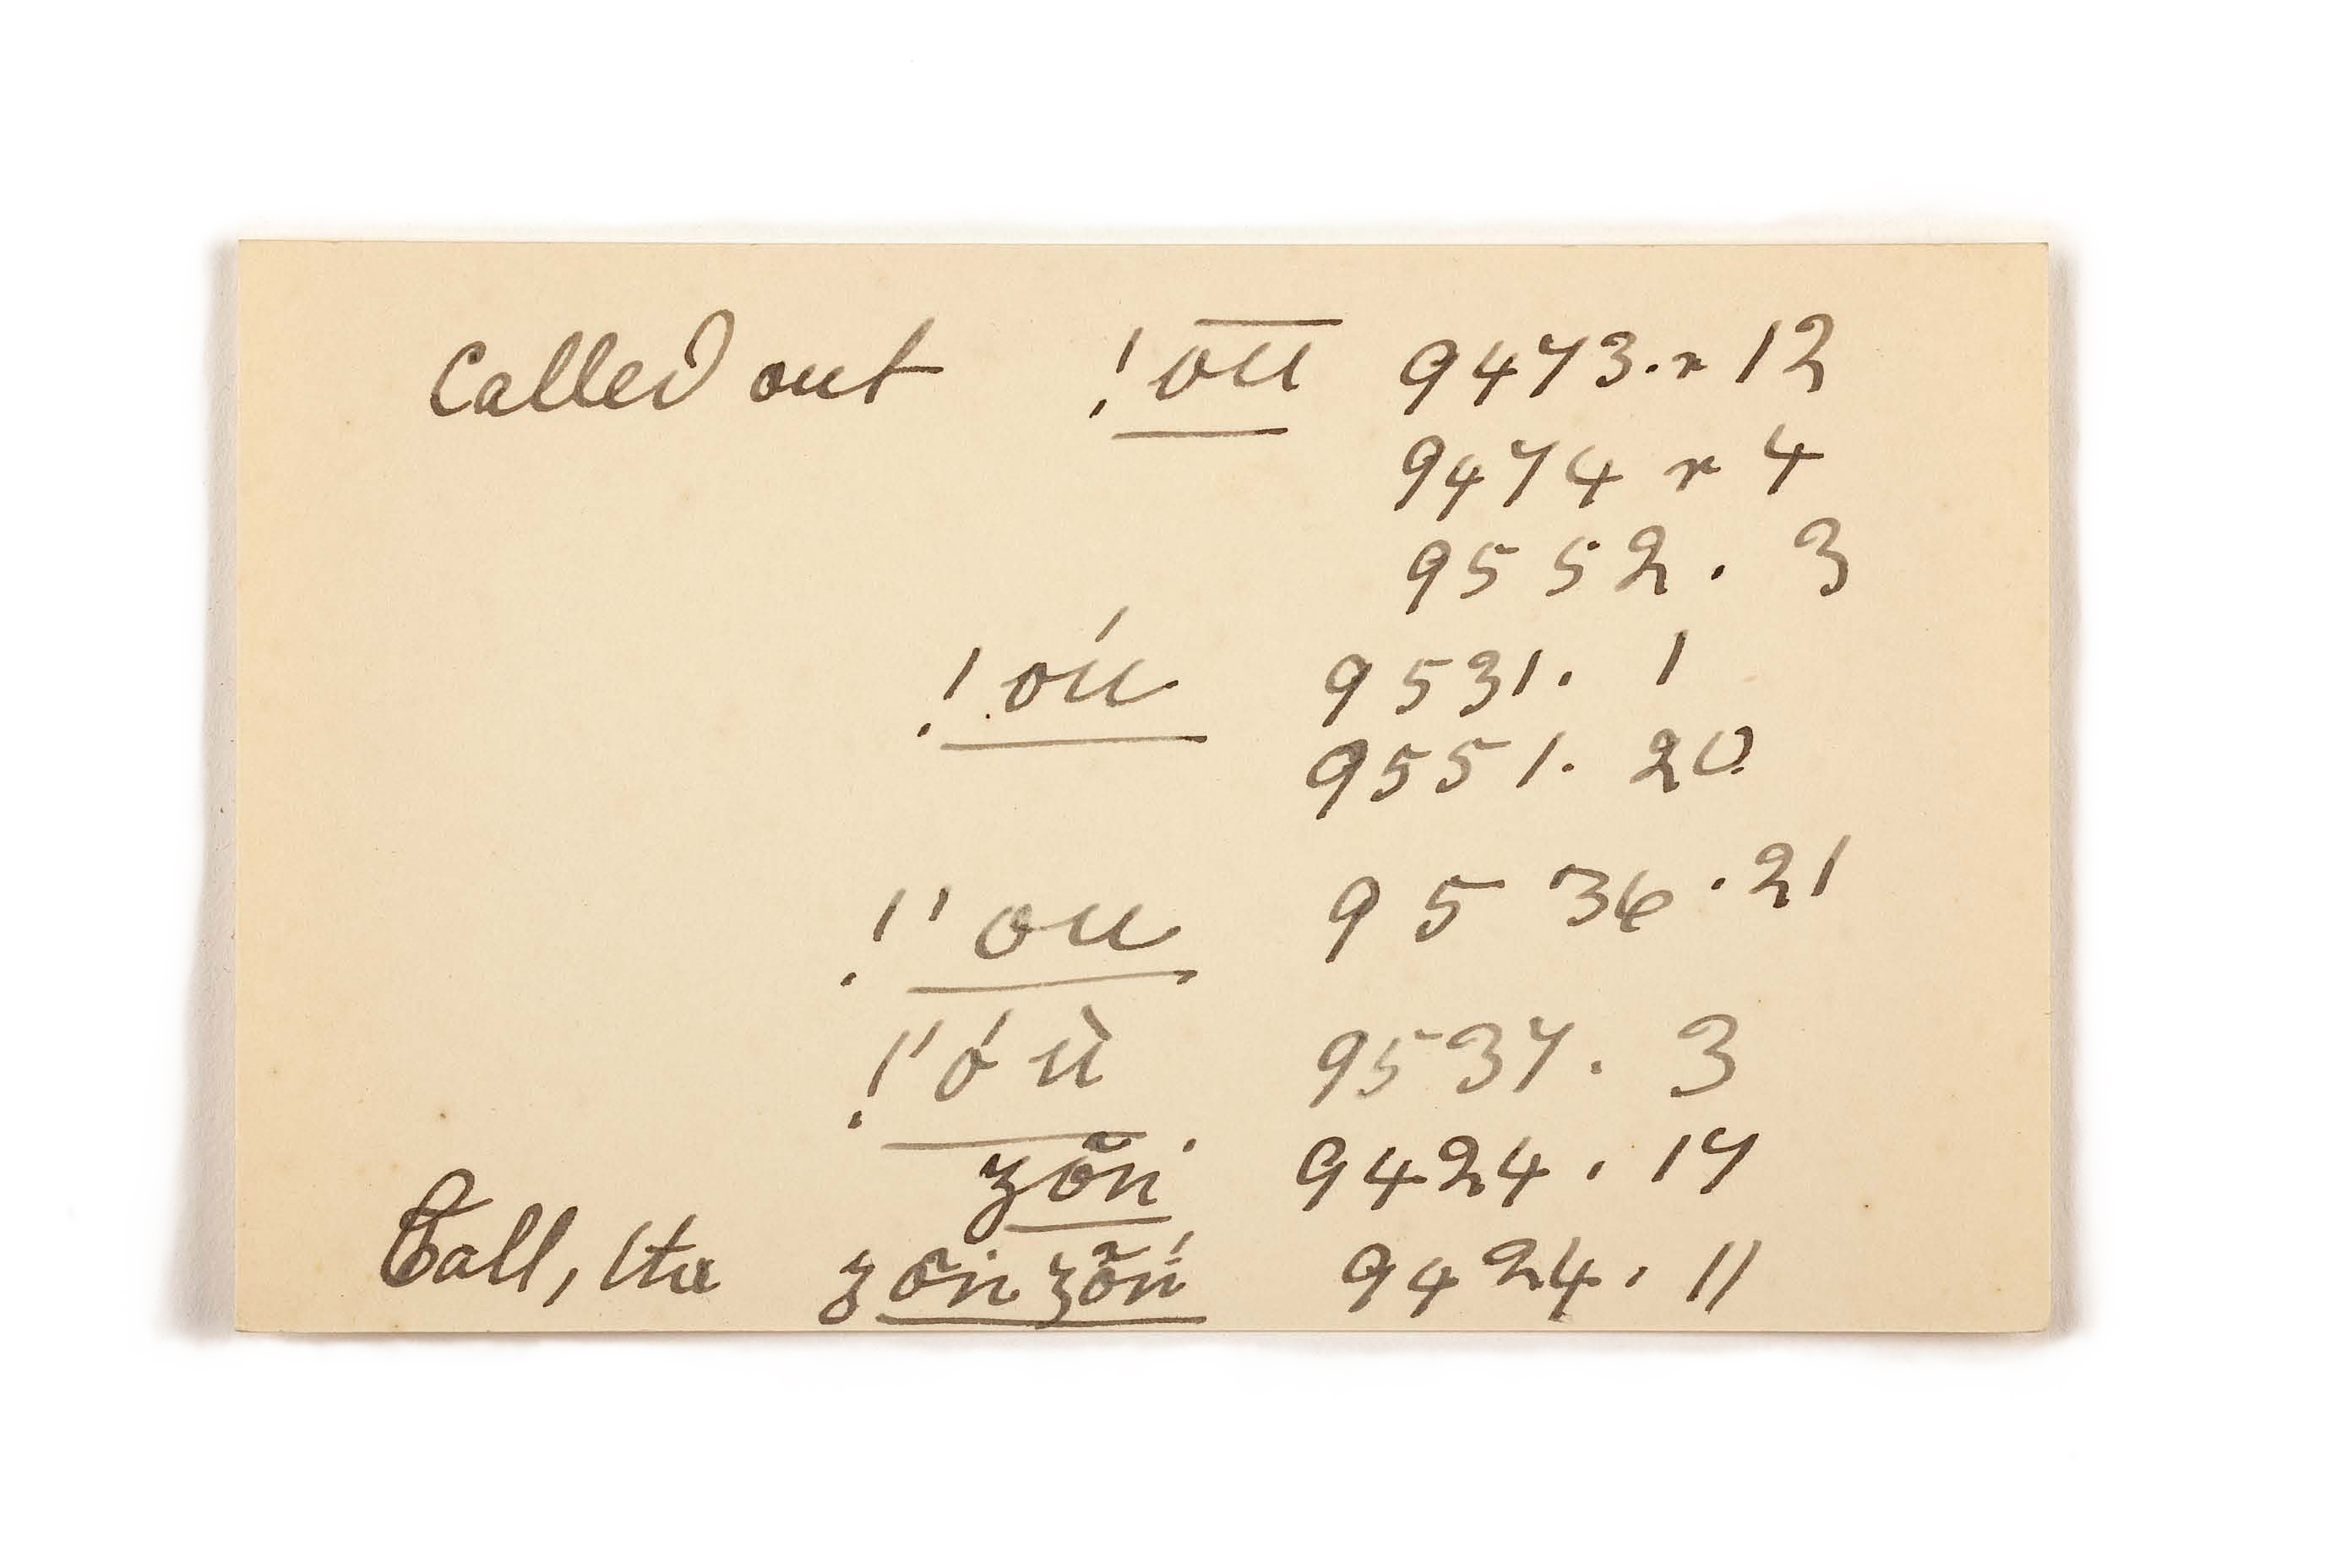 Called out !o͞u͞ 9473.r 12
9474 r 4
9552. 3
!óu 9531. 1
9551. 20.
!'ou 9536.21
!'óù 9537. 3
zõn. 9424. 17
Call, to zõn zõń 9424. 11